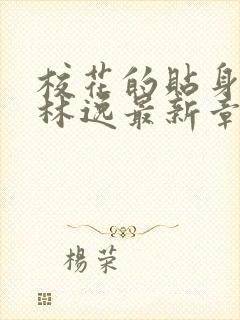 校花的貼身
林逸最新章
楊荣